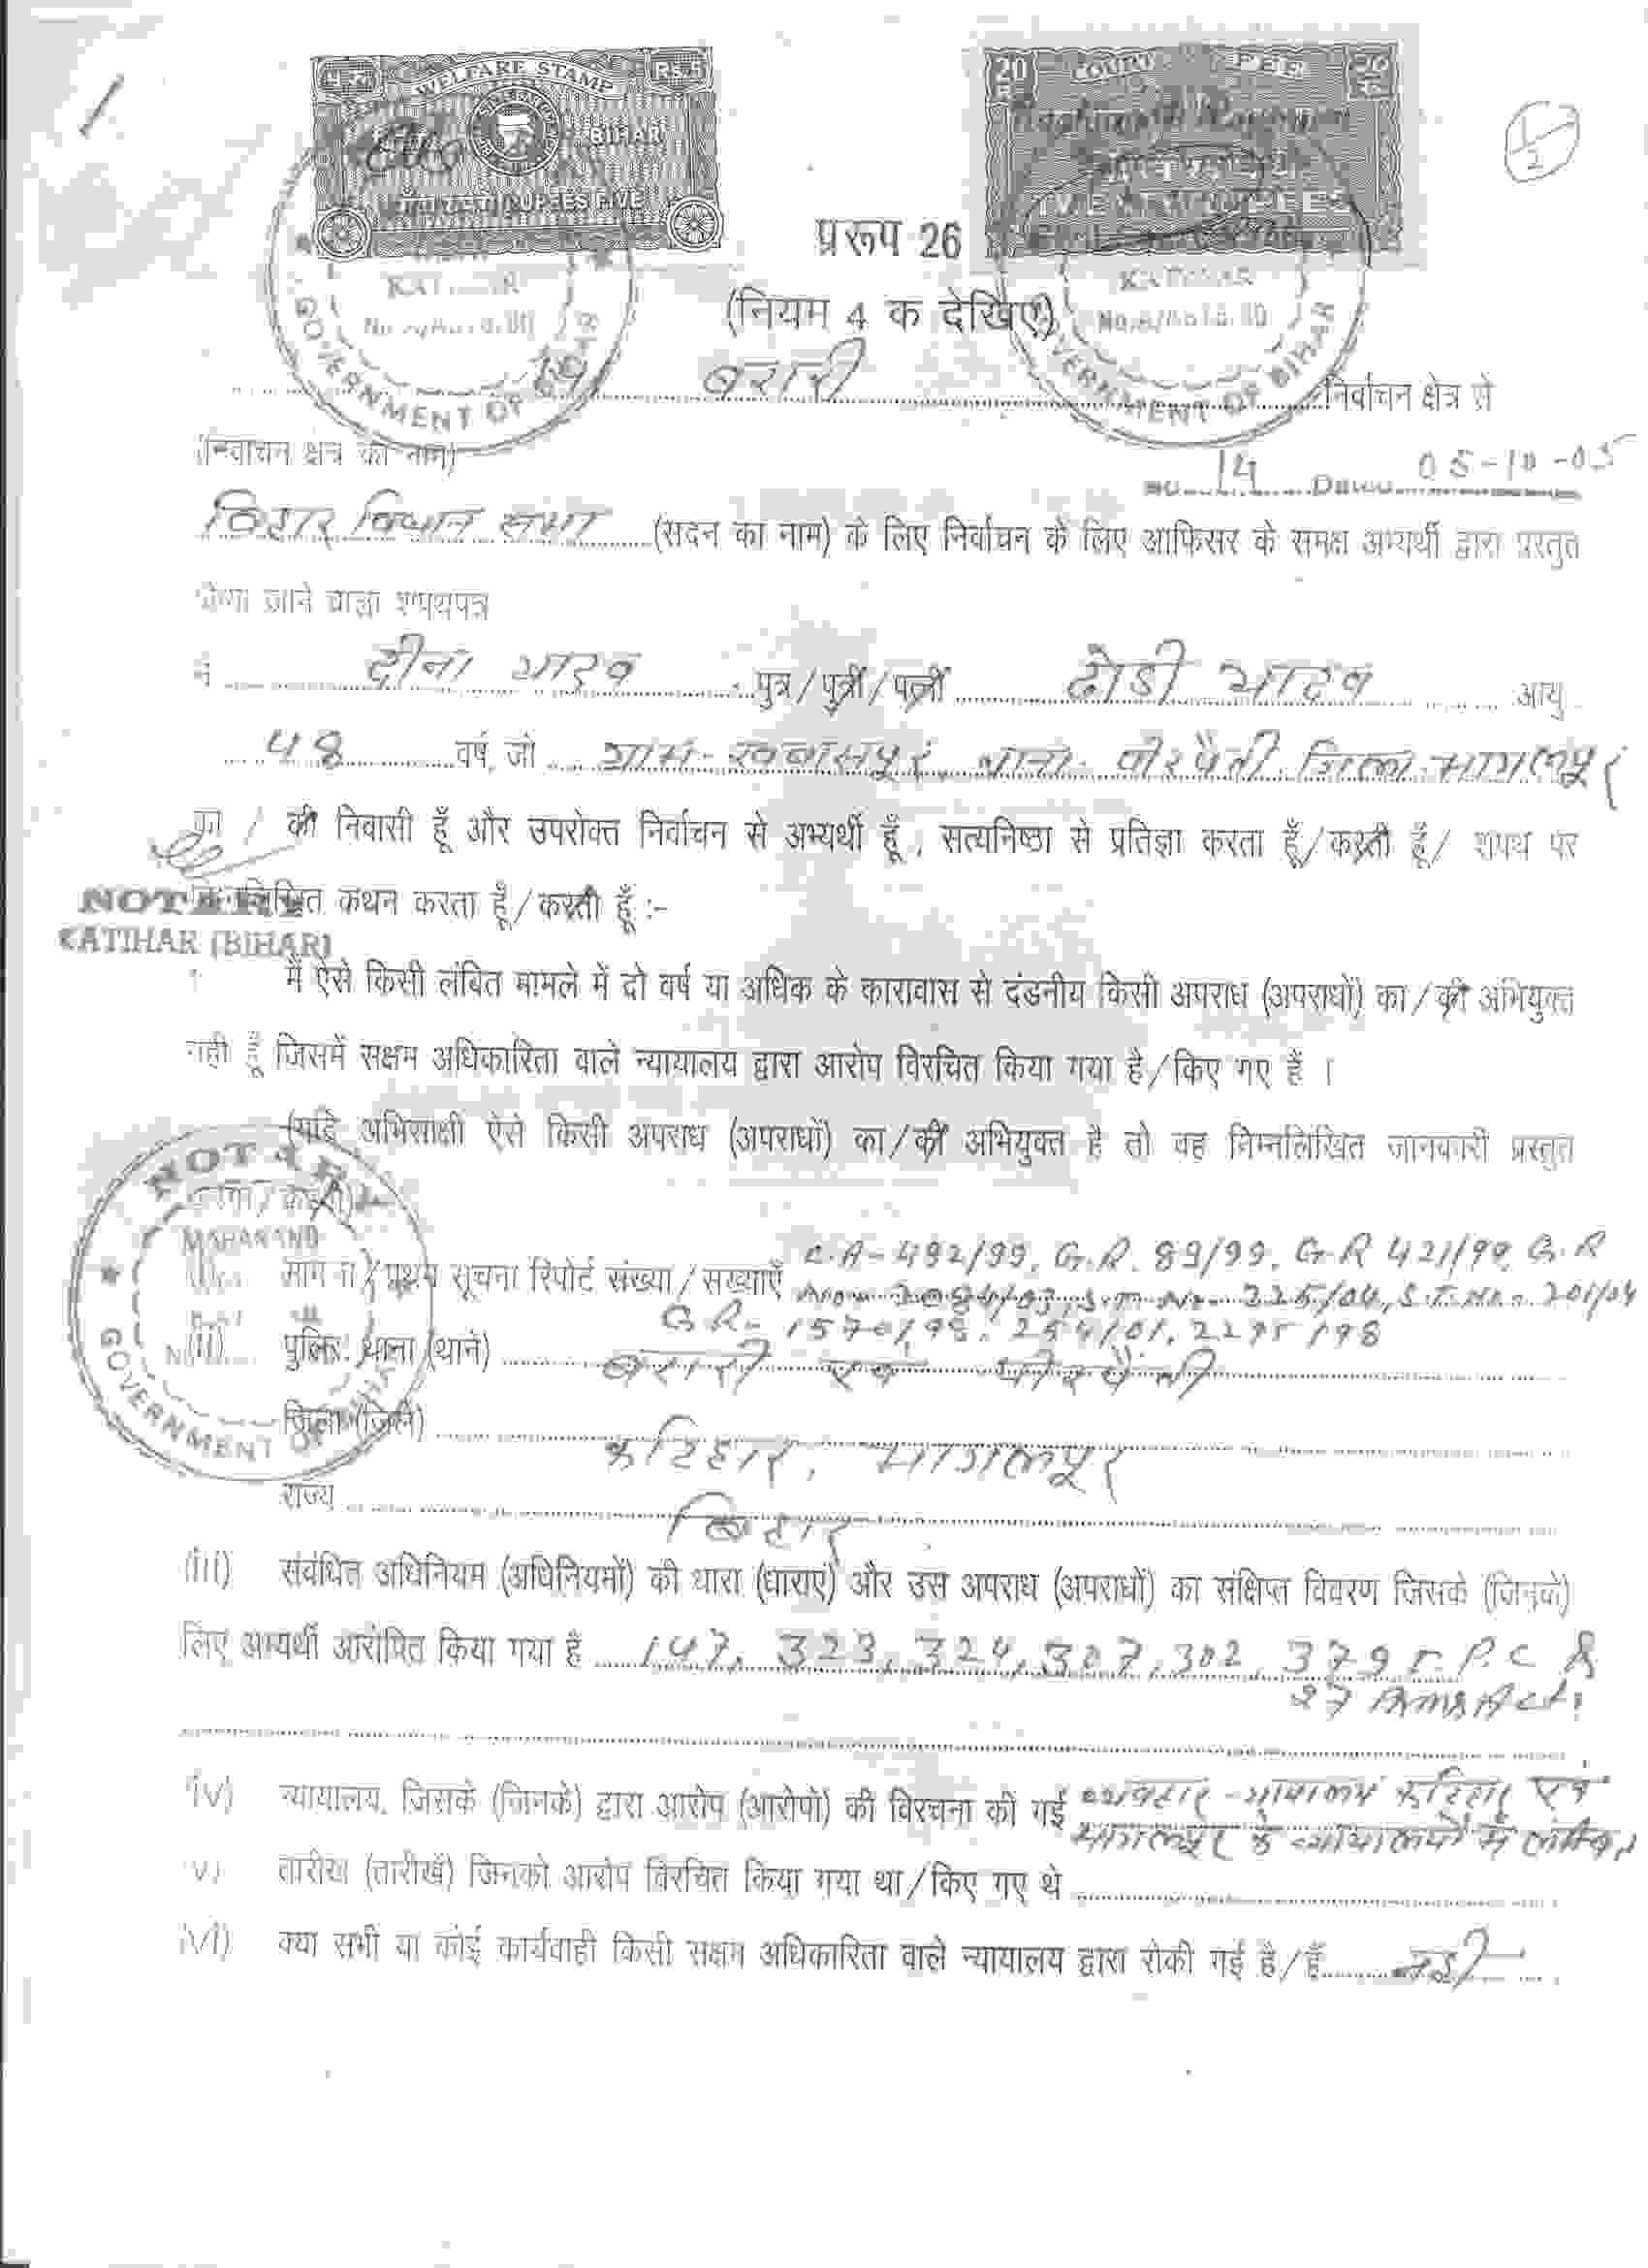 WELFARE STAMP Rs.5
BIHAR
RUPEES FIVE
20 COURT FEE 20
RUPEES
1/2
प्ररूप 26
KATIHAR
(नियम 4 क देखिए)
GOVERNMENT OF BIHAR
GOVERNMENT OF BIHAR
बरारी निर्वाचन क्षेत्र से
(निर्वाचन क्षेत्र का नाम)
No 14 Dated 05-10-05
बिहार विधान सभा (सदन का नाम) के लिए निर्वाचन के लिए आफिसर के समक्ष अभ्यर्थी द्वारा प्रस्तुत
किया जाने वाला शपथपत्र
मैं दीना यादव पुत्र/पुत्री/पत्नी ढोडी यादव आयु
48 वर्ष, जो ग्राम- खवासपूर, थाना- पीरपैंती जिला- भागलपूर
का / की निवासी हूँ और उपरोक्त निर्वाचन से अभ्यर्थी हूँ, सत्यनिष्ठा से प्रतिज्ञा करता हूँ/करती हूँ/ शपथ पर
निम्नलिखित कथन करता हूँ/करती हूँ :-
NOTARY
KATIHAR (BIHAR)
मैं ऐसे किसी लंबित मामले में दो वर्ष या अधिक के कारावास से दंडनीय किसी अपराध (अपराधों) का/की अभियुक्त
नहीं हूँ जिसमें सक्षम अधिकारिता वाले न्यायालय द्वारा आरोप विरचित किया गया है/किए गए हैं ।
(यदि अभिसाक्षी ऐसे किसी अपराध (अपराधों) का/की अभियुक्त है तो वह निम्नलिखित जानकारी प्रस्तुत
करेगा/करेगी)
NOTARY
MAHANAND
GOVERNMENT OF BIHAR
मामला/प्रथम सूचना रिपोर्ट संख्या/संख्याएँ C.A-492/99, G.R. 89/99, G.R 421/99, G.R
No- 2084/03, S.T. No- 225/04, S.T. No- 201/04
G.R- 1570/98, 254/01, 2295/98
(ii) पुलिस थाना (थाने) बरारी एवं पीरपैंती
जिला (जिले) कटिहार, भागलपूर
राज्य बिहार
(iii) संबंधित अधिनियम (अधिनियमों) की धारा (धाराएं) और उस अपराध (अपराधों) का संक्षिप्त विवरण जिसके (जिनके)
लिए अभ्यर्थी आरोपित किया गया है 147, 323, 324, 307, 302, 379 I.P.C &
27 Arms Act.
(iv) न्यायालय, जिसके (जिनके) द्वारा आरोप (आरोपों) की विरचना की गई व्यवहार न्यायालय कटिहार एवं
भागलपूर के न्यायालयों में लंबित।
(v) तारीख (तारीखें) जिनको आरोप विरचित किया गया था/किए गए थे
(vi) क्या सभी या कोई कार्यवाही किसी सक्षम अधिकारिता वाले न्यायालय द्वारा रोकी गई है/हैं नहीं